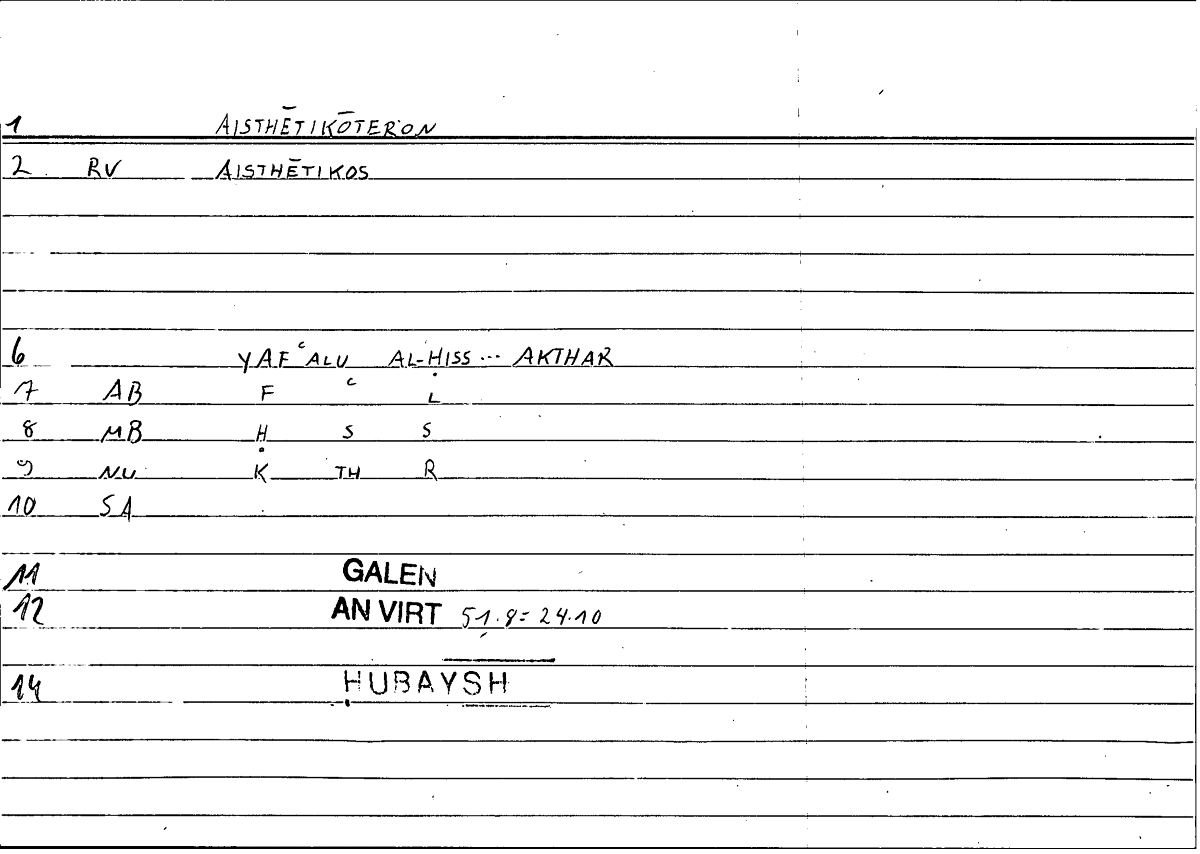 1 AISTHĒTIKŌTERON
2 RV AISTHĒTIKOS
6 YAFʿALU AL-ḤISS... AKTHAR
7 AB F ʿ L
8 MB Ḥ S S
9 NU K TH R
10 SA
11 GALEN
12 AN VIRT 51.9 = 24.10
14 ḤUBAYSH